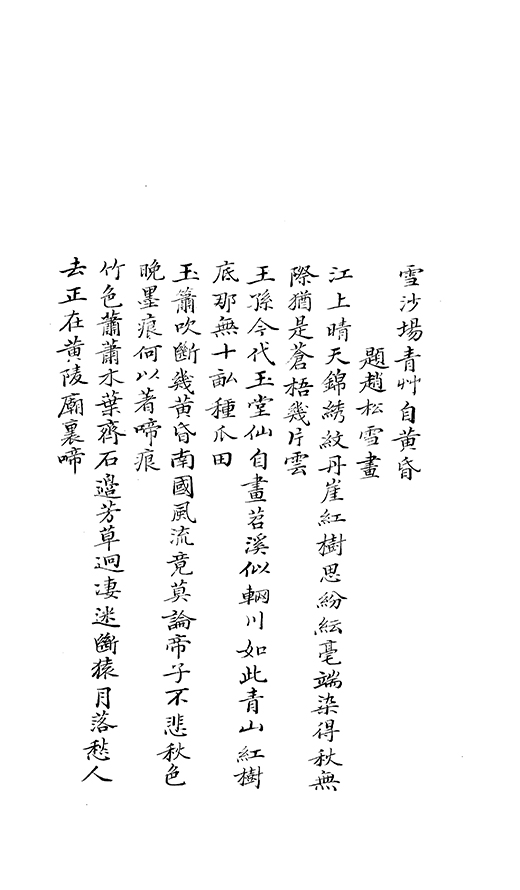 雪沙場青艸自黃昏
題趙松雪畫
江上晴天錦綉紋丹崖紅樹思紛紜毫端染得秋無
際猶是蒼梧幾片雲
王孫今代玉堂仙自畫苕溪似輞川如此青山紅樹
底那無十畝種瓜田
玉簫吹斷幾黃昏南國風流竟莫論帝子不悲秋色
晚墨痕何以著啼痕
竹色蕭蕭木葉齊石邉芳草迥凄迷斷猿月落愁人
去正在黃陵廟裏啼